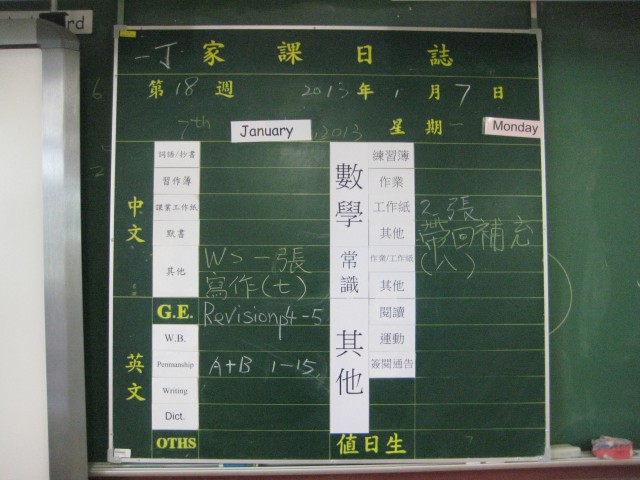 rd
一丁 家課日誌
第 18 週 2013 年 1 月 7 日
7th January, 2013 星期一 Monday
中文
詞語/抄書
習作簿
課業工作紙
默書
其他
WS一張
寫作(七)
G.E. Revision p4-5
英文
W.B.
Penmanship A+B 1-15
Writing
Dict.
OTHS
數學
練習簿
作業
工作紙 2張
其他 帶回補充
(八)
常識
作業/工作紙
其他
其他
閱讀
運動
簽閱通告
值日生